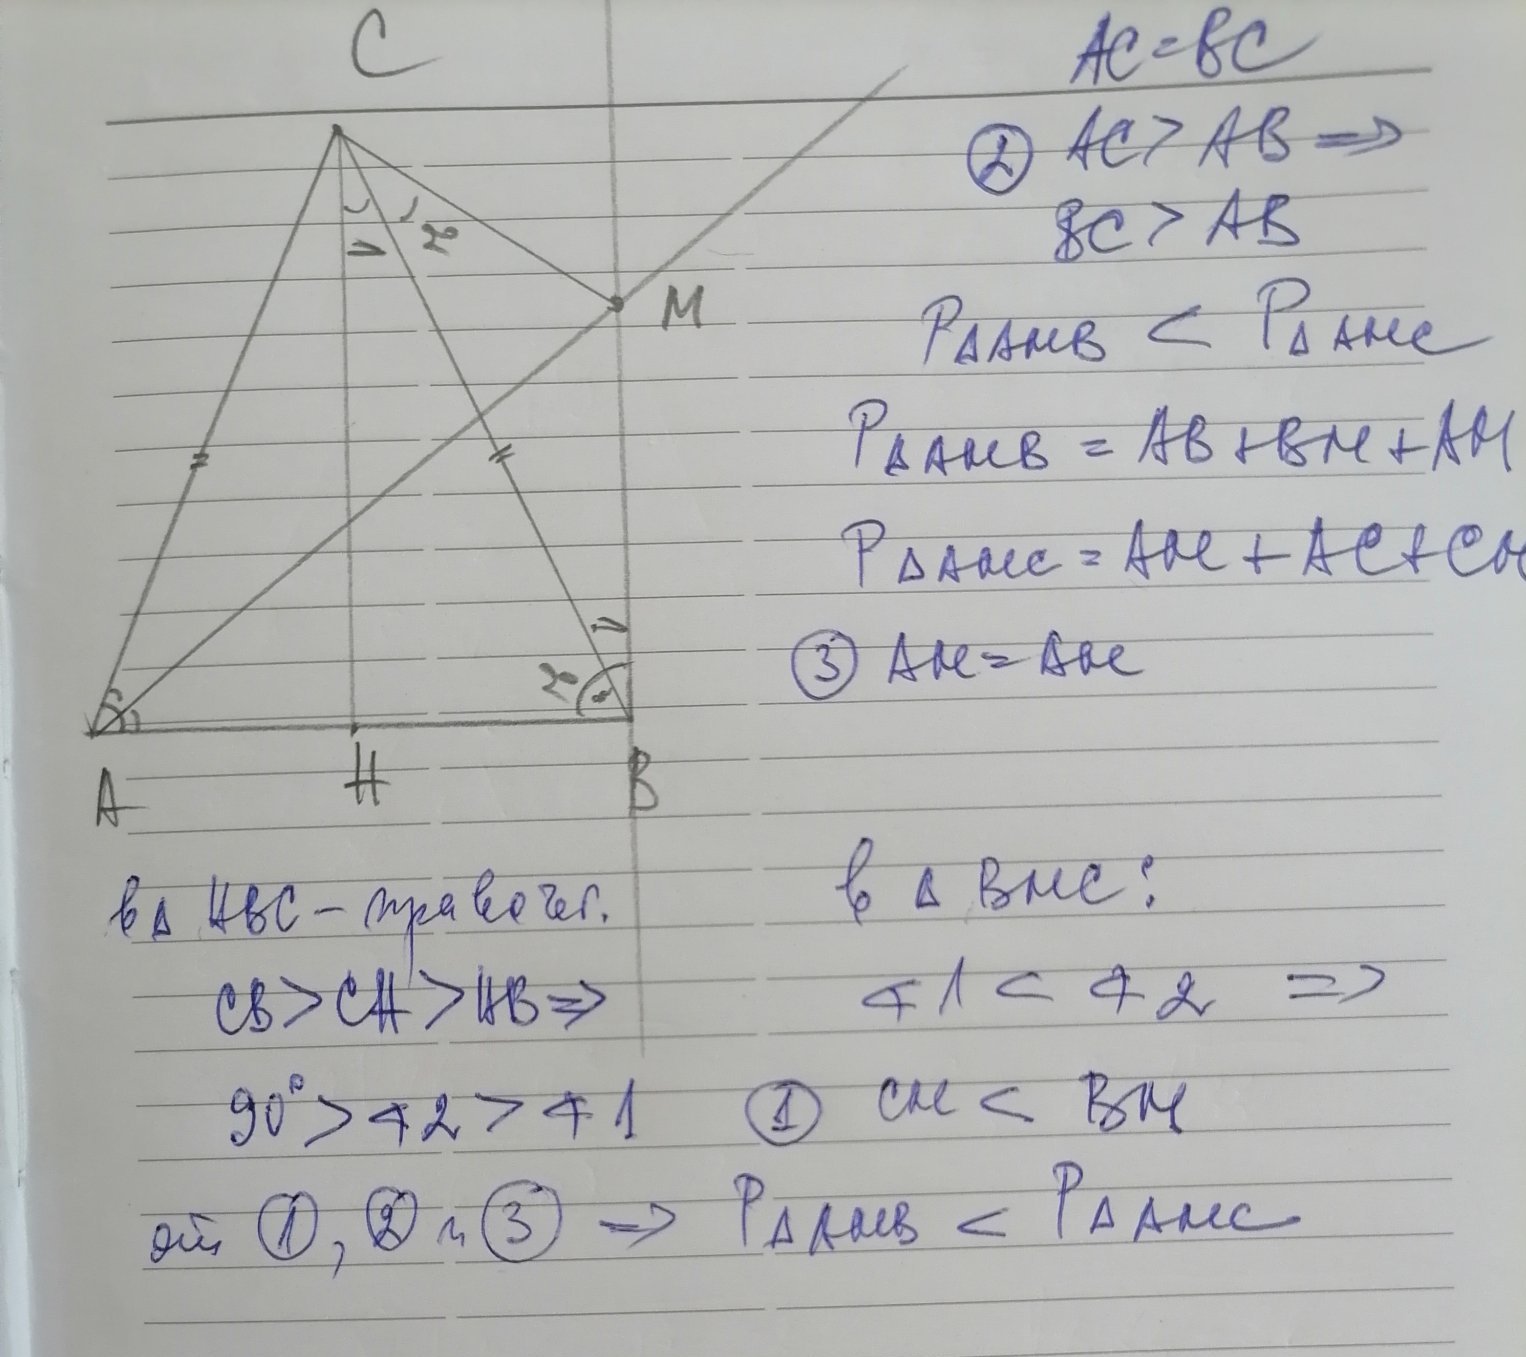 C
AC=BC
② AC > AB ⇒
BC > AB
1 2
M
P△AMB < P△AMC
P△AMB = AB+BM+AM
P△AMC = AM + AC+CM
1
③ AM = AM
2
A H B
в △ HBC – правоъг.
CB > CH > HB ⇒
90° > ∢2 > ∢1
в △ BMC:
∢1 < ∢2 ⇒
① CM < BM
от ①, ② и ③ ⇒ P△AMB < P△AMC